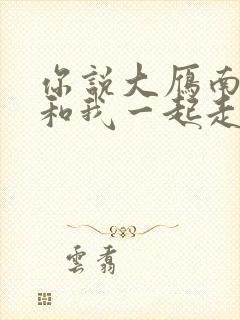 你說大雁南
和我一起走
雲翥